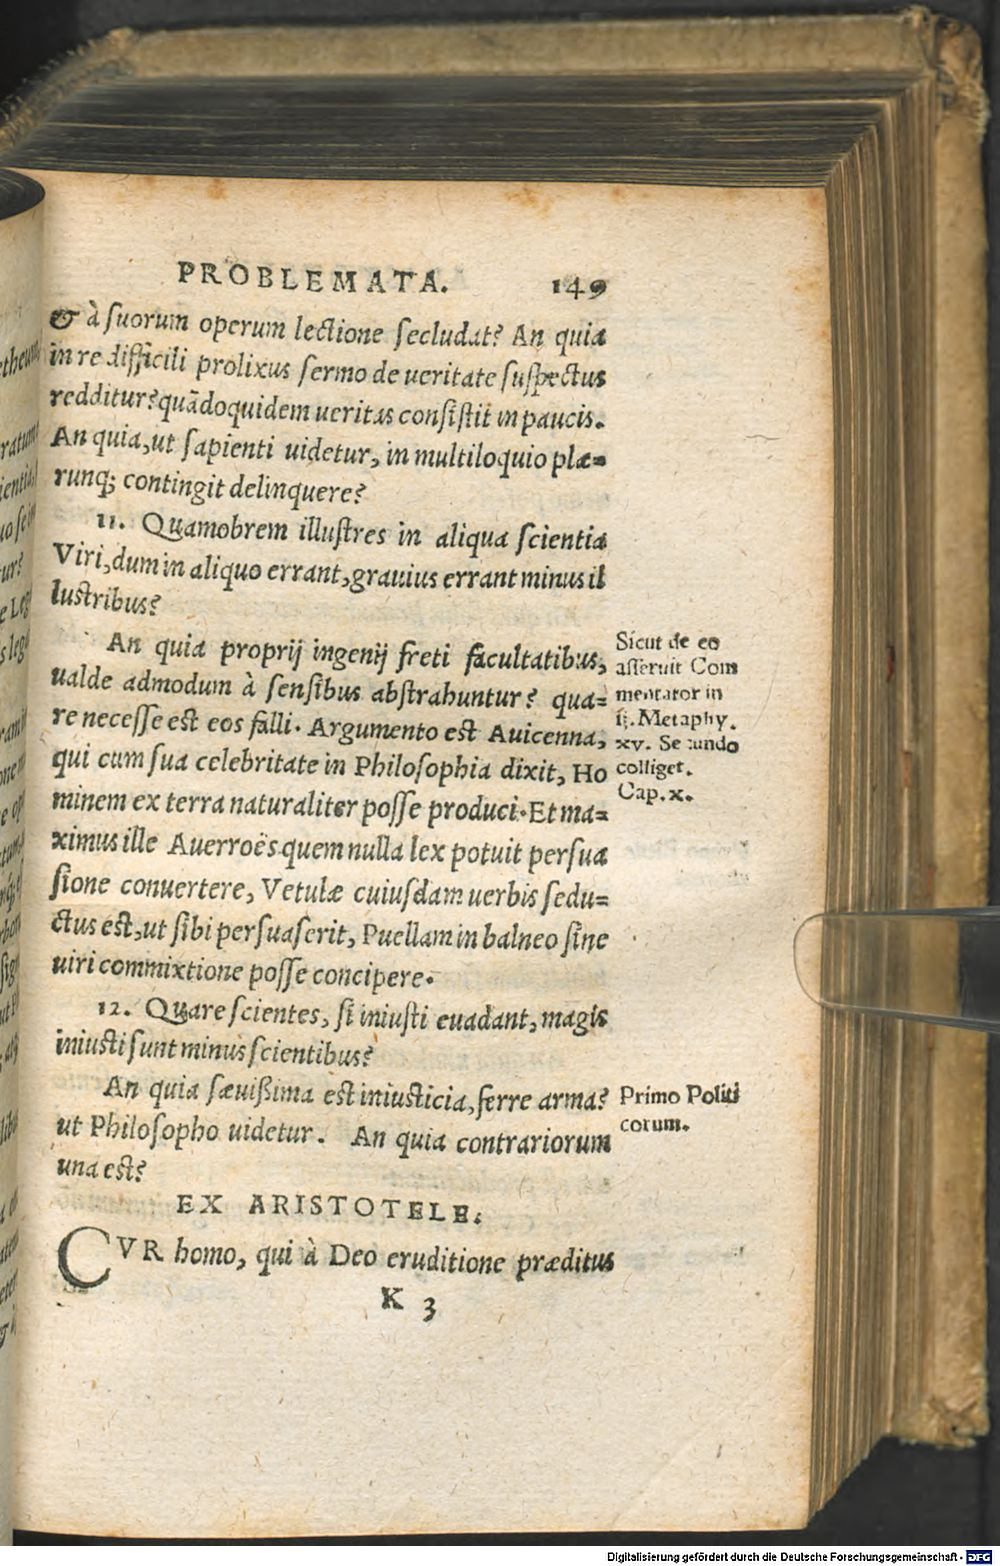 PROBLEMATA. 149
& à suorum operum lectione secludat? An quia
in re difficili prolixus sermo de ueritate suspectus
redditur? quãdoquidem ueritas consistit in paucis.
An quia, ut sapienti uidetur, in multiloquio plæ=
runq; contingit delinquere?
11. Quamobrem illustres in aliqua scientia
Viri, dum in aliquo errant, grauius errant minus il
lustribus?
An quia proprij ingenij freti facultatibus,
ualde admodum à sensibus abstrahuntur? qua=
re necesse est eos falli. Argumento est Auicenna,
qui cum sua celebritate in Philosophia dixit, Ho
minem ex terra naturaliter posse produci. Et ma=
ximus ille Auerroës quem nulla lex potuit persua
sione conuertere, Vetulæ cuiusdam uerbis sedu=
ctus est, ut sibi persuaserit, Puellam in balneo sine
uiri commixtione posse concipere.
Sicut de eo
asseruit Com
mentator in
ij. Metaphy.
xv. Secundo
colliget.
Cap. x.
12. Quare scientes, si iniusti euadant, magis
iniusti sunt minus scientibus?
An quia sæuißima est iniusticia, ferre arma?
ut Philosopho uidetur. An quia contrariorum
una est?
Primo Politi
corum.
EX ARISTOTELE.
CVR homo, qui à Deo eruditione præditus
K 3
Digitalisierung gefördert durch die Deutsche Forschungsgemeinschaft - DFG